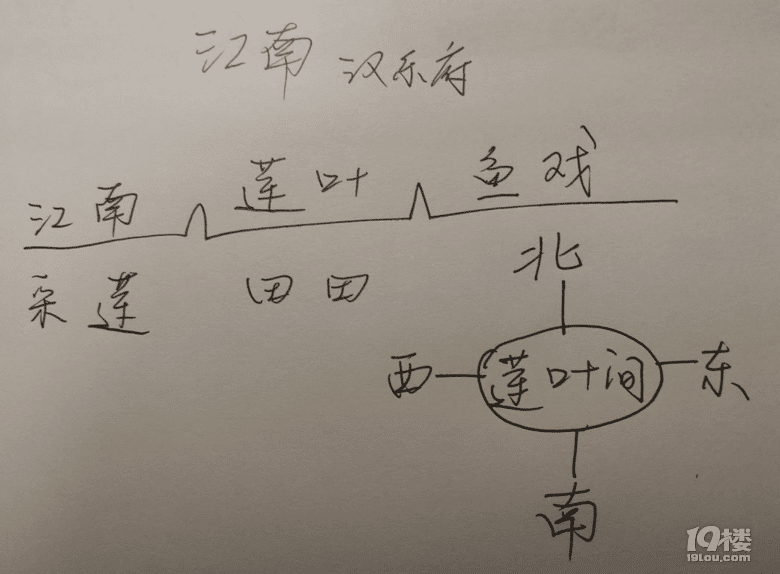 江南 汉乐府
江南 莲叶 鱼戏
采莲 田田
北
西 莲叶间 东
南
19楼
19lou.com